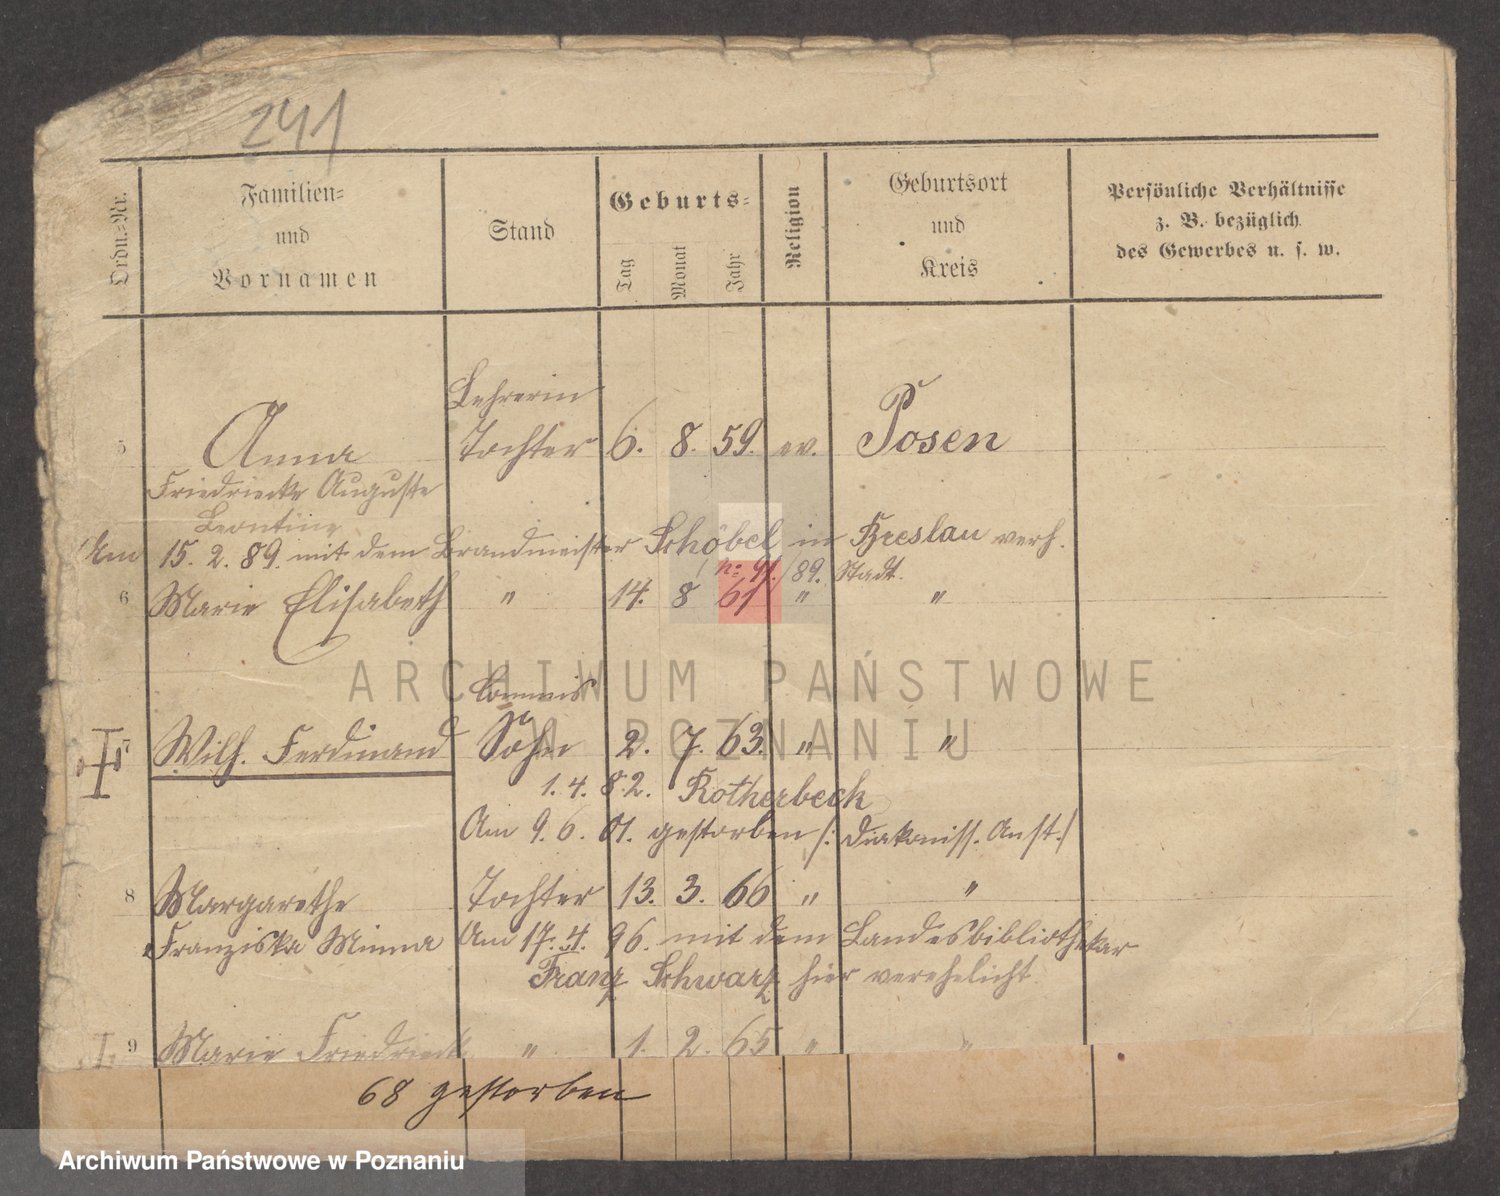 241
Ordn.-Nr.
Familien-
und
Vornamen
Stand
Geburts-
Tag
Monat
Jahr
Religion
Geburtsort
und
Kreis
Persönliche Verhältnisse
z. B. bezüglich
des Gewerbes u. s. w.
Lehrerin
5 Anna Tochter 6. 8. 59. ev. Posen
Friedriecke Auguste
Leontine
Am 15. 2. 89. mit dem Brandmeister Schöbel in Breslau verh.
No 41./89. Stadt.
6 Marie Elisabeth " 14. 8 61 " "
ARCHIWUM PAŃSTWOWE
W POZNANIU
Commis
7 Wilh. Ferdinand Sohn 2. 7. 63. " "
1. 4. 82. Rotherbeck
Am 9. 6. 01. gestorben /: Diakoniss. Anst. /
8 Margarethe Tochter 13. 3. 66 " "
Franziska Minna Am 17. 4. 96. mit dem Landesbibliothekar
Franz Schwarz hier verehelicht
9 Marie Friedrieck " 1. 2. 65 " "
68 gestorben
Archiwum Państwowe w Poznaniu